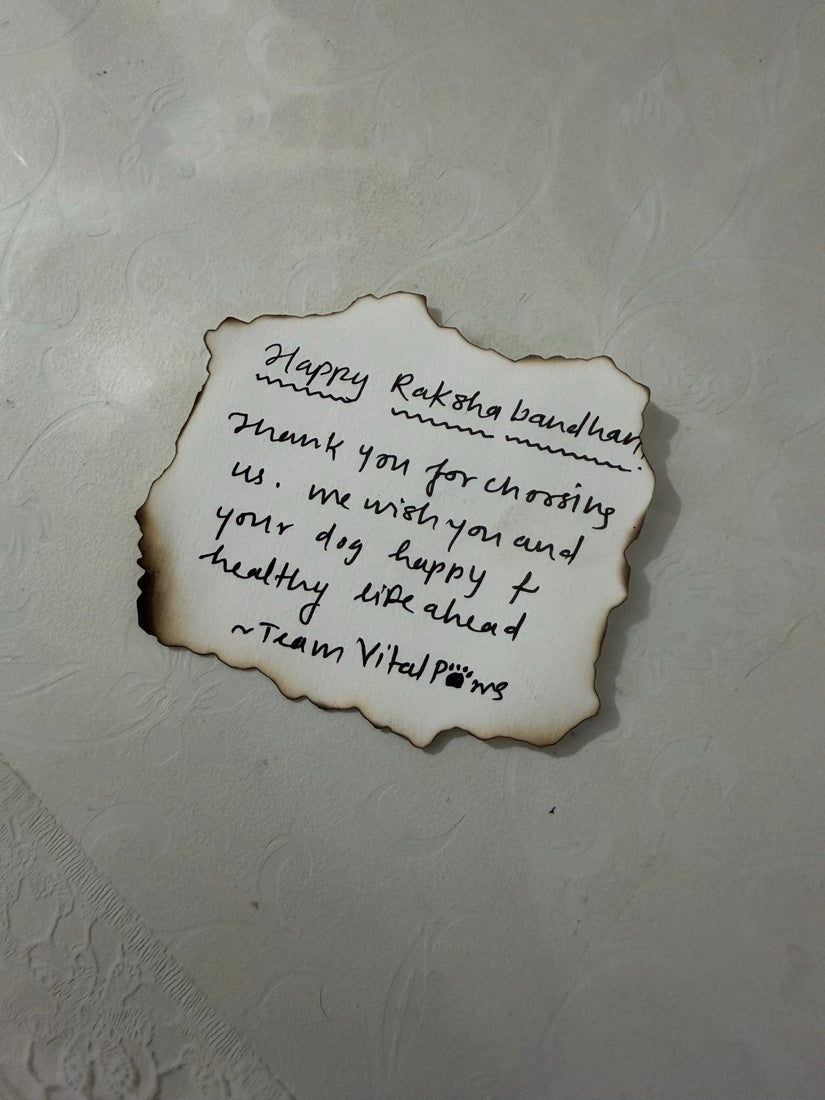 Happy Rakshabandhan
Thank you for choosing
us. We wish you and
your dog happy &
healthy life ahead
~Team VitalPaws